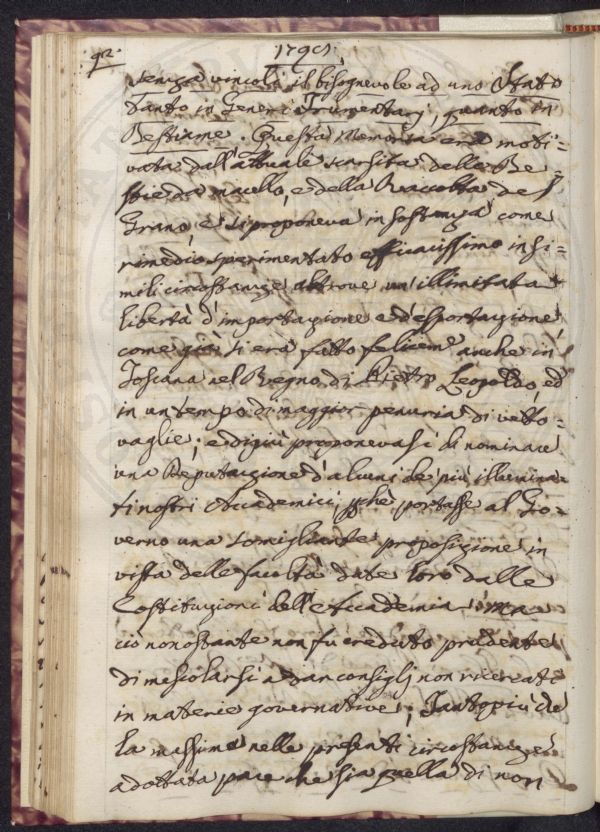 92.
179
senza vincoli il bisognevole ad uno Stato
tanto in Generi Frumentarj, quanto in
Bestiame. Questa Memoria era moti=
vata dall'attuale scarsità delle Be
stie da macello, e della Raccolta de
Grano, e si proponeva in sostanza come
rimedio sperimentato efficacissimo in si=
mili circostanze altrove un'illimitata
libertà d'importazione e d'esportazione
come già si era fatto felicem.e anche in
Toscana nel Regno di Pietro Leopoldo, ed
in un tempo di maggior penuria di vetto=
vaglie; e di più proponevasi di nominare
una Deputazione d'alcuni de' più illumina=
ti nostri Accademici, che portasse al Go=
verno una somigliante proposizione in
vista delle facoltà date loro dalle
Costituzioni dell'Accademia; ma
ciò nonostante non fu creduto prudente
di mescolarsi a dar consigli non ricercati
in materie governative; Tantopiù che
la massima nelle presenti circostanze
adottata pare che sia quella di non